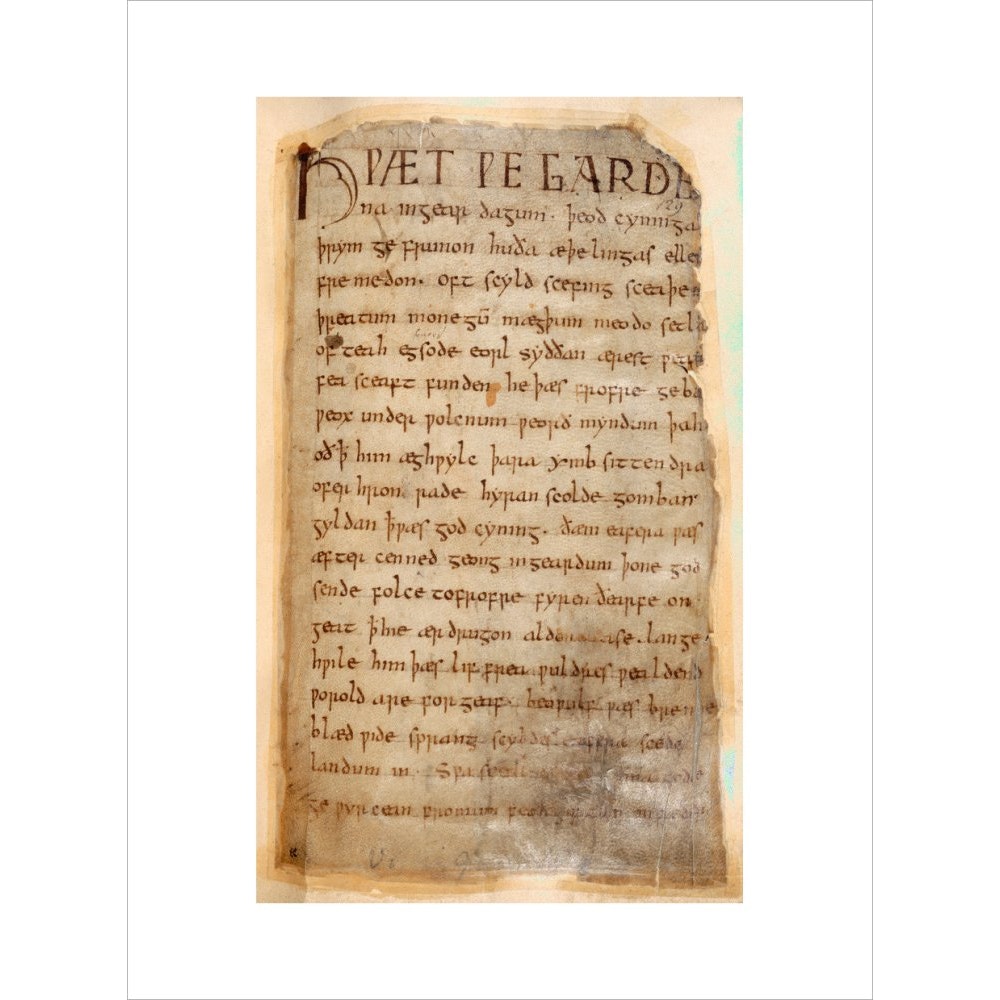 HǷÆT ǷE GARDE
na ingear dagum. þeod cyninga
þrym ge frunon huða æþelingas elle
fre medon. oft scyld scefing sceaþe
þreatum monegū mægþum meodo setla
of teah egsode eorl syððan ærest ƿear
fea sceaft funden he þæs frofre geba
ƿeox under ƿolcnum ƿeorð myndum þah
oð ꝥ him æghƿylc þara ymb sittendra
ofer hron rade hyran scolde gomban
gyldan ꝥ ƿæs god cyning. ðæm eafera ƿæs
æfter cenned geong ingeardum þone god
sende folce tofrofre fyren ðearfe on
geat ꝥ hie ær drugon aldor ase. lange
hƿile him þæs lif frea ƿuldres ƿealdend
ƿorold are for geaf. beoƿulf ƿæs breme
blæd ƿide sprang scyldes eafera scede
landum in. Sƿa sceal guma gode
ge ƿyrcean fromum feoh giftum on fæder